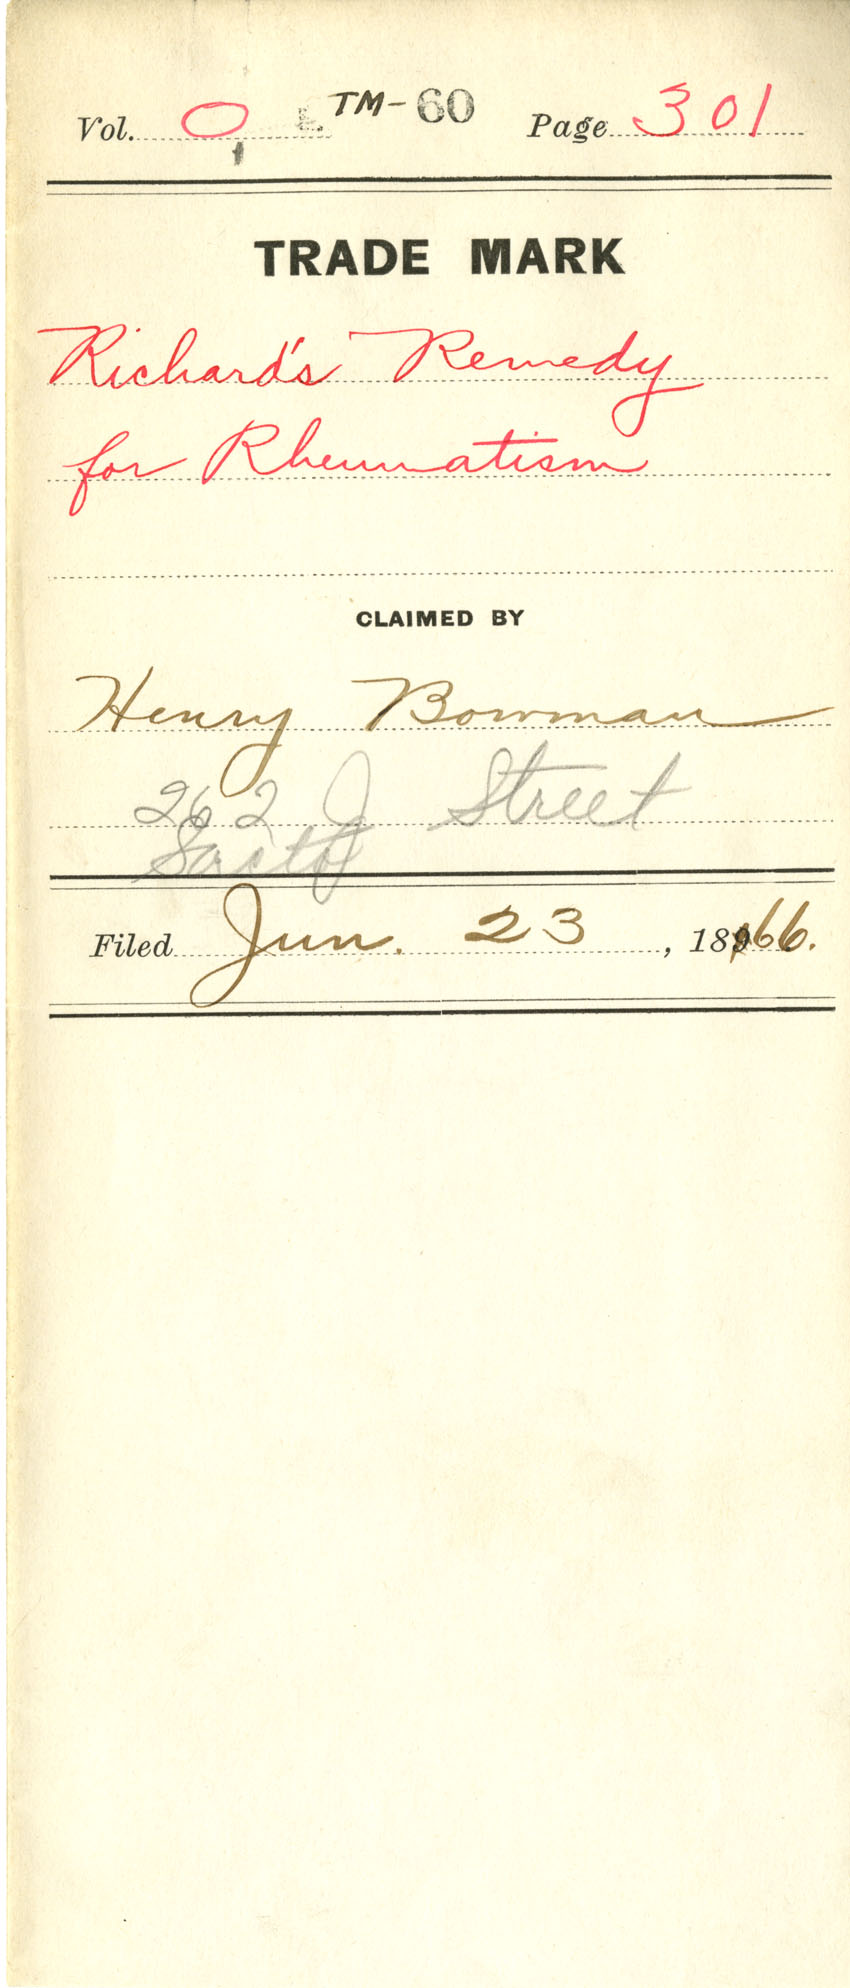 Vol. 0 TM-60 Page 301
TRADE MARK
Richard's Remedy
for Rheumatism
CLAIMED BY
Henry Bowman
262 J Street
Sacto
Filed Jun. 23, 1866.